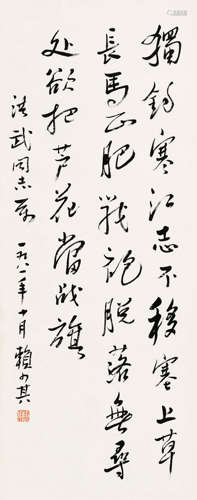 獨钓寒江志不移塞上草
長馬正肥战袍脱落無尋
处欲把芦花當战旗
武同志属
一九八一年十月賴少其